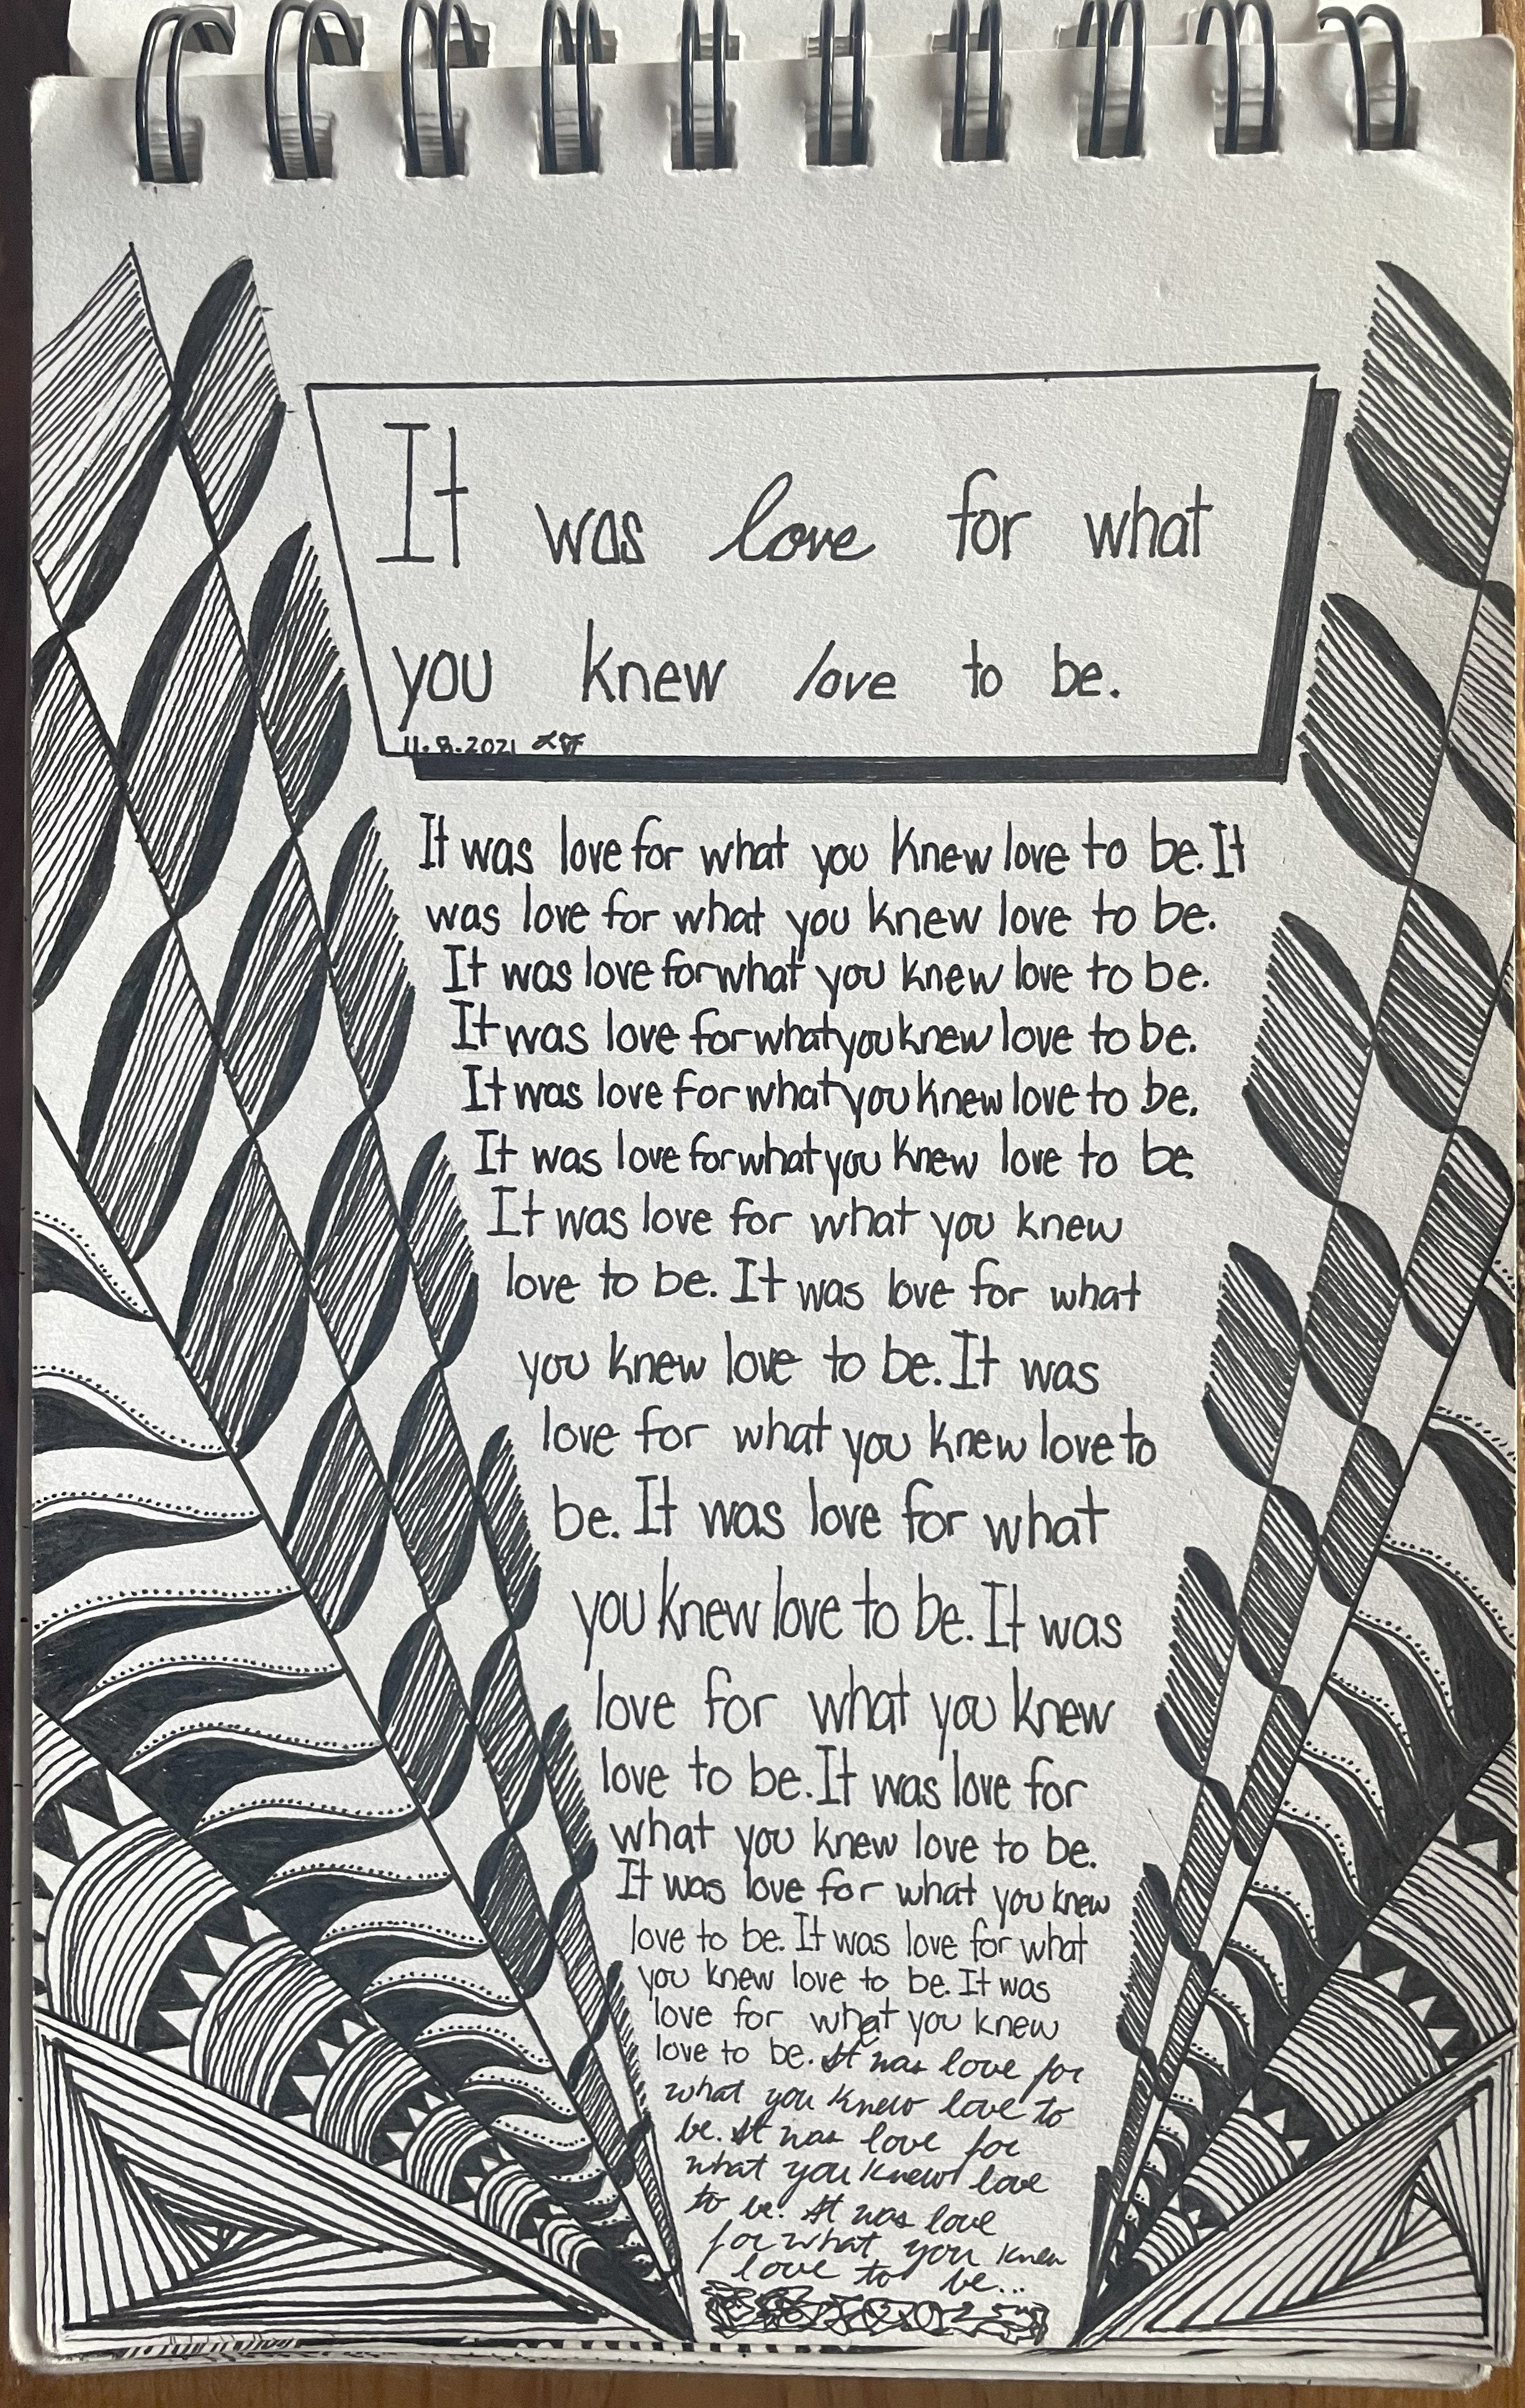 It was love for what
you knew love to be.
11.8.2021
It was love for what you knew love to be. It
was love for what you knew love to be.
It was love for what you knew love to be.
It was love for what you knew love to be.
It was love for what you knew love to be.
It was love for what you knew love to be.
It was love for what you knew
love to be. It was love for what
you knew love to be. It was
love for what you knew love to
be. It was love for what
you knew love to be. It was
love for what you knew
love to be. It was love for
what you knew love to be.
It was love for what you knew
love to be. It was love for what
you knew love to be. It was
love for what you knew
love to be. It was love for
what you knew love to
be. It was love for
what you knew love
to be. It was love
for what you knew
love to be...